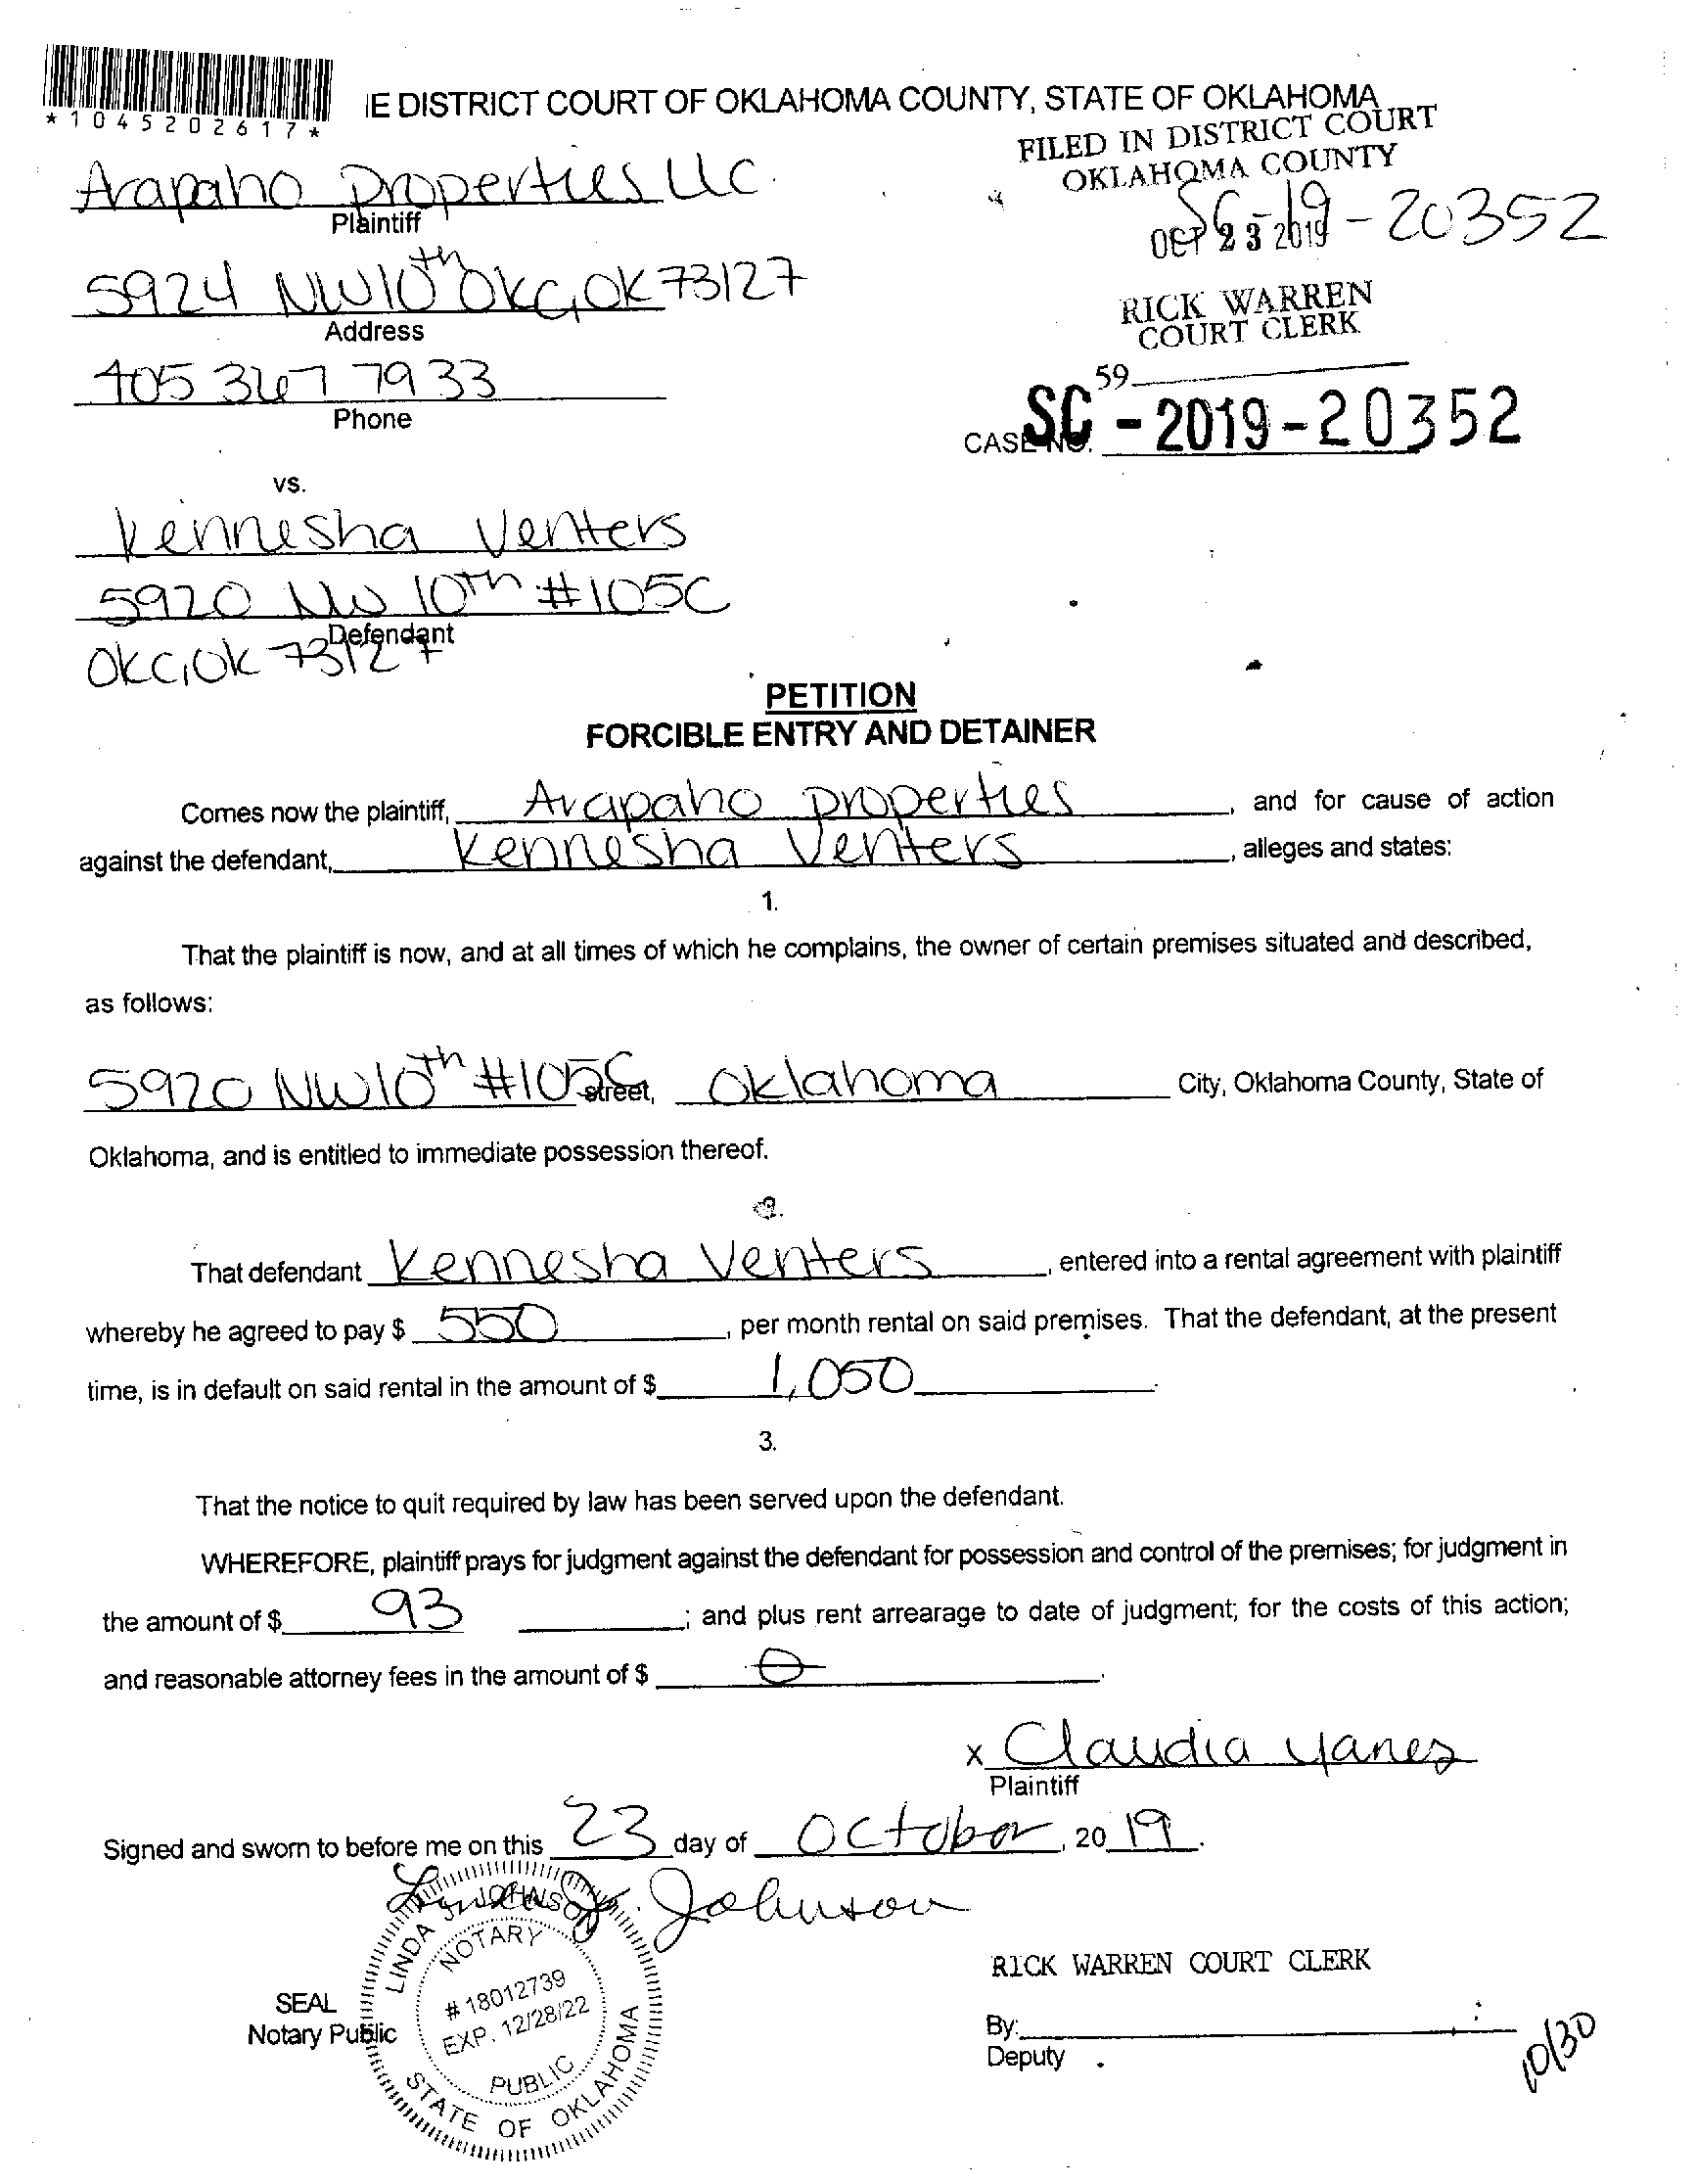 *1045202617*
IE DISTRICT COURT OF OKLAHOMA COUNTY, STATE OF OKLAHOMA
FILED IN DISTRICT COURT
OKLAHOMA COUNTY
Arapaho Properties LLC
Plaintiff
SC-19-20352
OCT 23 2019
5924 NW10th OKC, OK 73127
Address
RICK WARREN
COURT CLERK
405 367 7933
Phone
59
CASE NO. SC-2019-20352
vs.
Kennesha Venters
5920 NW 10th #105C
Defendant
OKC, OK 73127
PETITION
FORCIBLE ENTRY AND DETAINER
Comes now the plaintiff, Arapaho properties, and for cause of action
against the defendant, Kennesha Venters, alleges and states:
1.
That the plaintiff is now, and at all times of which he complains, the owner of certain premises situated and described,
as follows:
5920 NW10th #105C street, Oklahoma City, Oklahoma County, State of
Oklahoma, and is entitled to immediate possession thereof.
2.
That defendant Kennesha Venters, entered into a rental agreement with plaintiff
whereby he agreed to pay $ 550, per month rental on said premises. That the defendant, at the present
time, is in default on said rental in the amount of $ 1,050.
3.
That the notice to quit required by law has been served upon the defendant.
WHEREFORE, plaintiff prays for judgment against the defendant for possession and control of the premises; for judgment in
the amount of $ 93; and plus rent arrearage to date of judgment; for the costs of this action;
and reasonable attorney fees in the amount of $ 0.
x Claudia Yanez
Plaintiff
Signed and sworn to before me on this 23 day of October, 2019.
Linda J. Johnson
LINDA J. JOHNSON
NOTARY
# 18012739
EXP. 12/28/22
PUBLIC
STATE OF OKLAHOMA
SEAL
Notary Public
RICK WARREN COURT CLERK
By:
Deputy
10/30